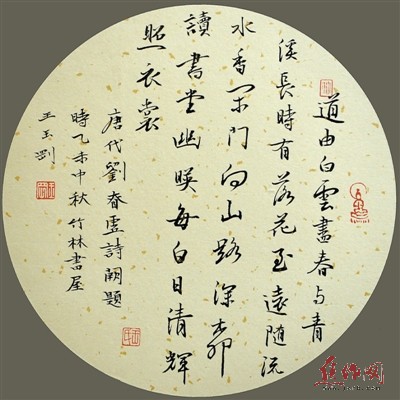 道由白雲盡春与青
溪長時有落花至遠隨流
水香閑門向山路深柳
讀書堂幽暎每白日清輝
照衣裳
唐代劉眘虛詩闕題
時乙未中秋竹林書屋
王玉劉
焦作网